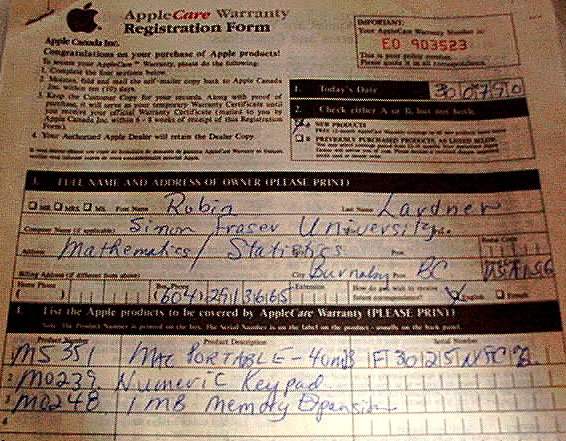 AppleCare Warranty
Registration Form
Apple Canada Inc.
Congratulations on your purchase of Apple products!
To ensure your AppleCare™ Warranty, please do the following:
1. Complete the four sections below.
2. Moisten, fold and mail the self-mailer copy back to Apple Canada Inc. within ten (10) days.
3. Keep the Customer Copy for your records. Along with proof of
purchase, it will serve as your temporary Warranty Certificate until
you receive your official Warranty Certificate (mailed to you by
Apple Canada Inc. within 6 - 8 weeks of receipt of this Registration
Form).
4. Your Authorized Apple Dealer will retain the Dealer Copy.
IMPORTANT:
Your AppleCare Warranty Number is:
ED 903523
This is your policy number.
Please quote it in all correspondence.
1. Today's Date 30 07 90
2. Check either A or B, but not both.
A NEW PRODUCTS
B PREVIOUSLY PURCHASED PRODUCTS, AS LISTED BELOW
3. FULL NAME AND ADDRESS OF OWNER (PLEASE PRINT)
MR. MRS. MS. First Name Robin Last Name Lardner
Company Name (if applicable) Simon Fraser University
Address Mathematics / Statistics Prov. Postal Code
Billing Address (if different from above) City Burnaby Prov. BC V5A 1S6
Home Phone ( ) Bus. Phone (604) 2913665 Extension How do you wish to receive future correspondence? English French
4. List the Apple products to be covered by AppleCare Warranty (PLEASE PRINT)
Note: The Product Number is printed on the box. The Serial Number is on the label on the product - usually on the back panel.
Product Number Product Description Serial Number
1 M5351 MAC PORTABLE - 40MB F3025
2 M0239 Numeric Keypad
3 M0248 1 MB Memory Expansion
4